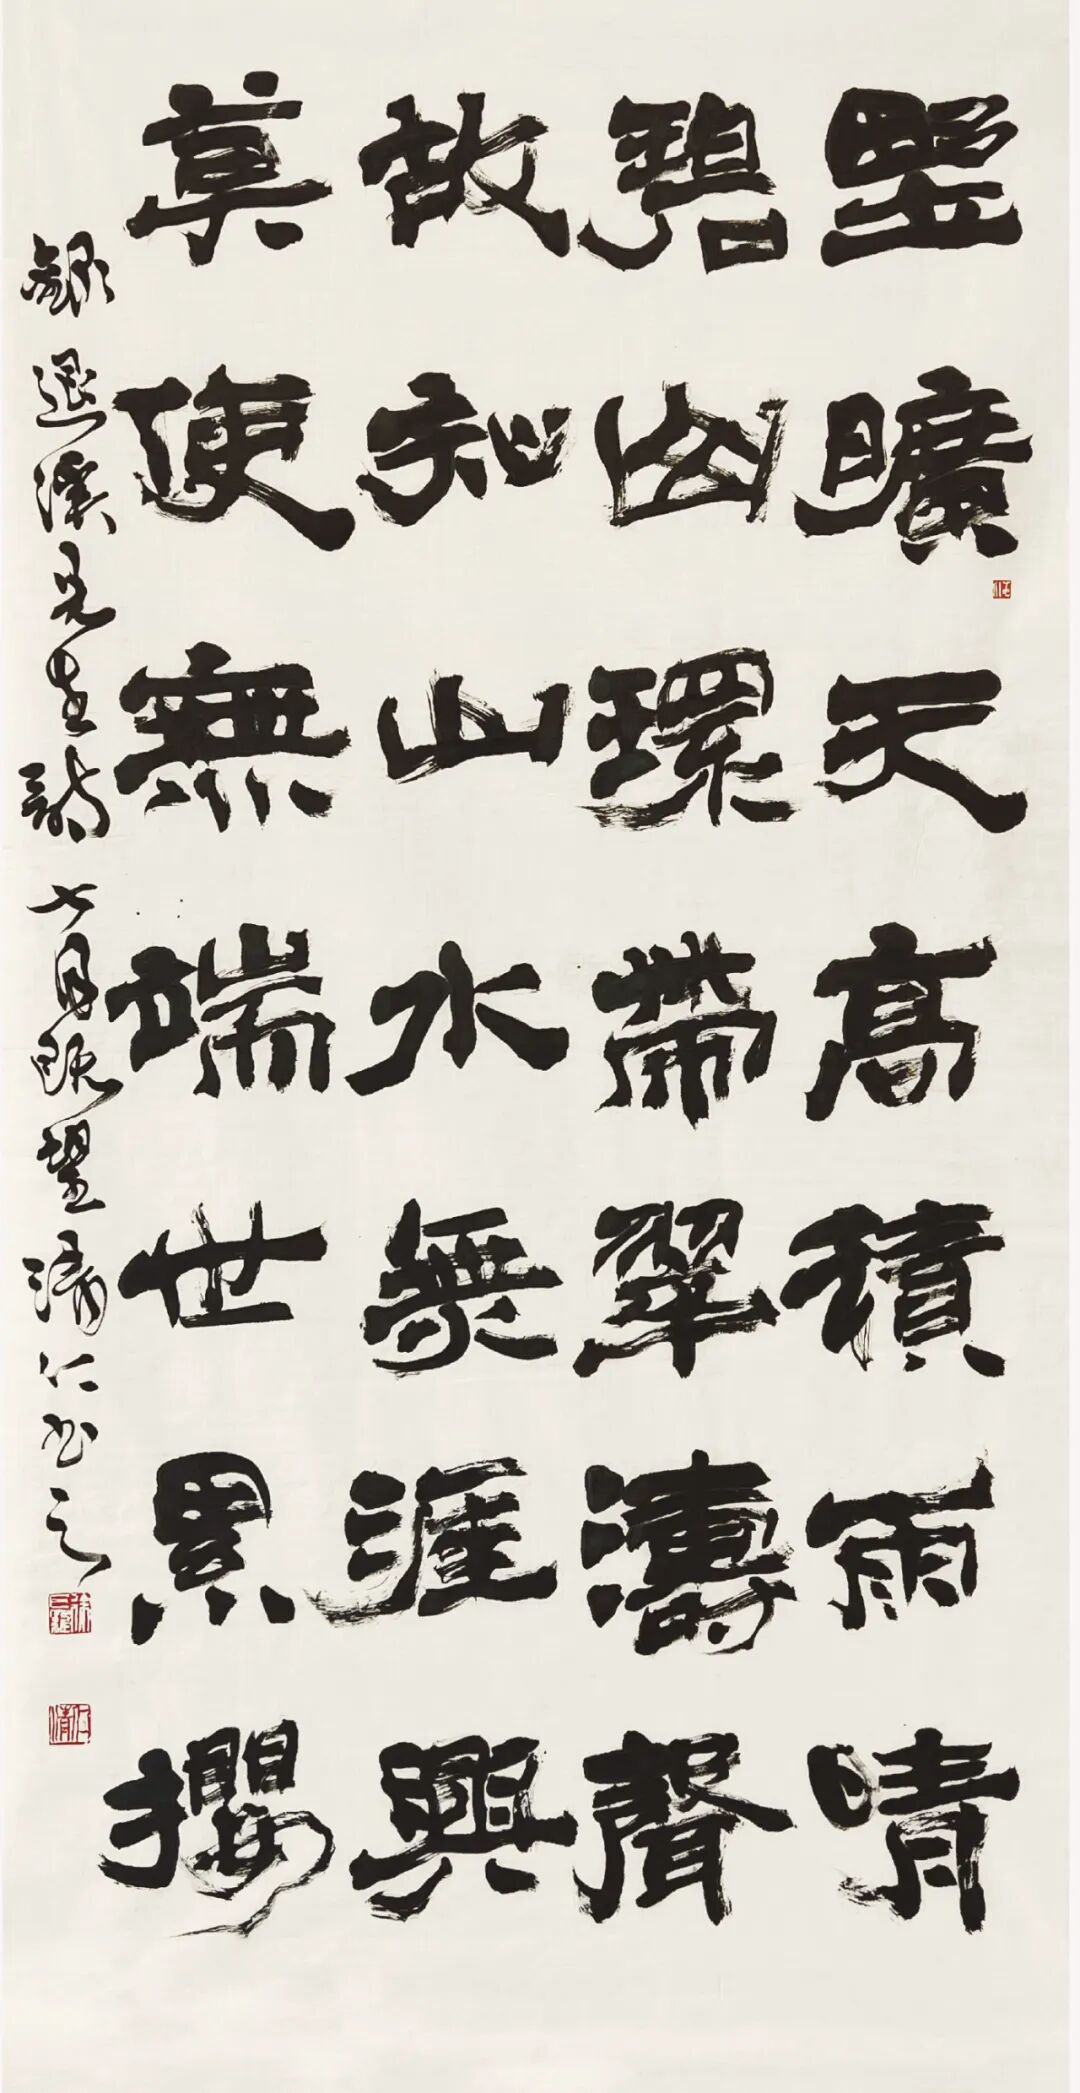 野曠天高積雨晴
碧山環帶翠濤聲
故知山水無涯興
莫使無端世累攖
錄退溪先生詩七月既望清仁书之